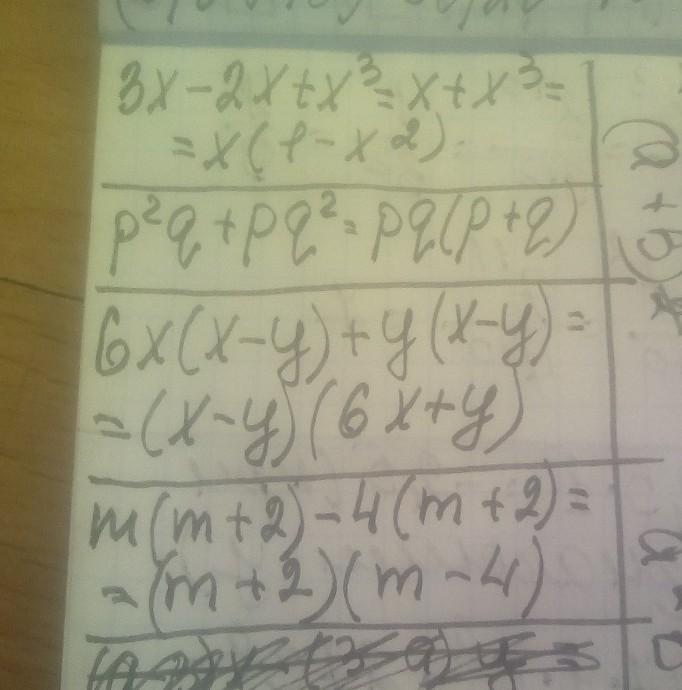 3x-2x+x³=x+x³=
=x(1-x²)
p²q+pq²=pq(p+q)
6x(x-y)+y(x-y)=
=(x-y)(6x+y)
m(m+2)-4(m+2)=
=(m+2)(m-4)
(a+b)